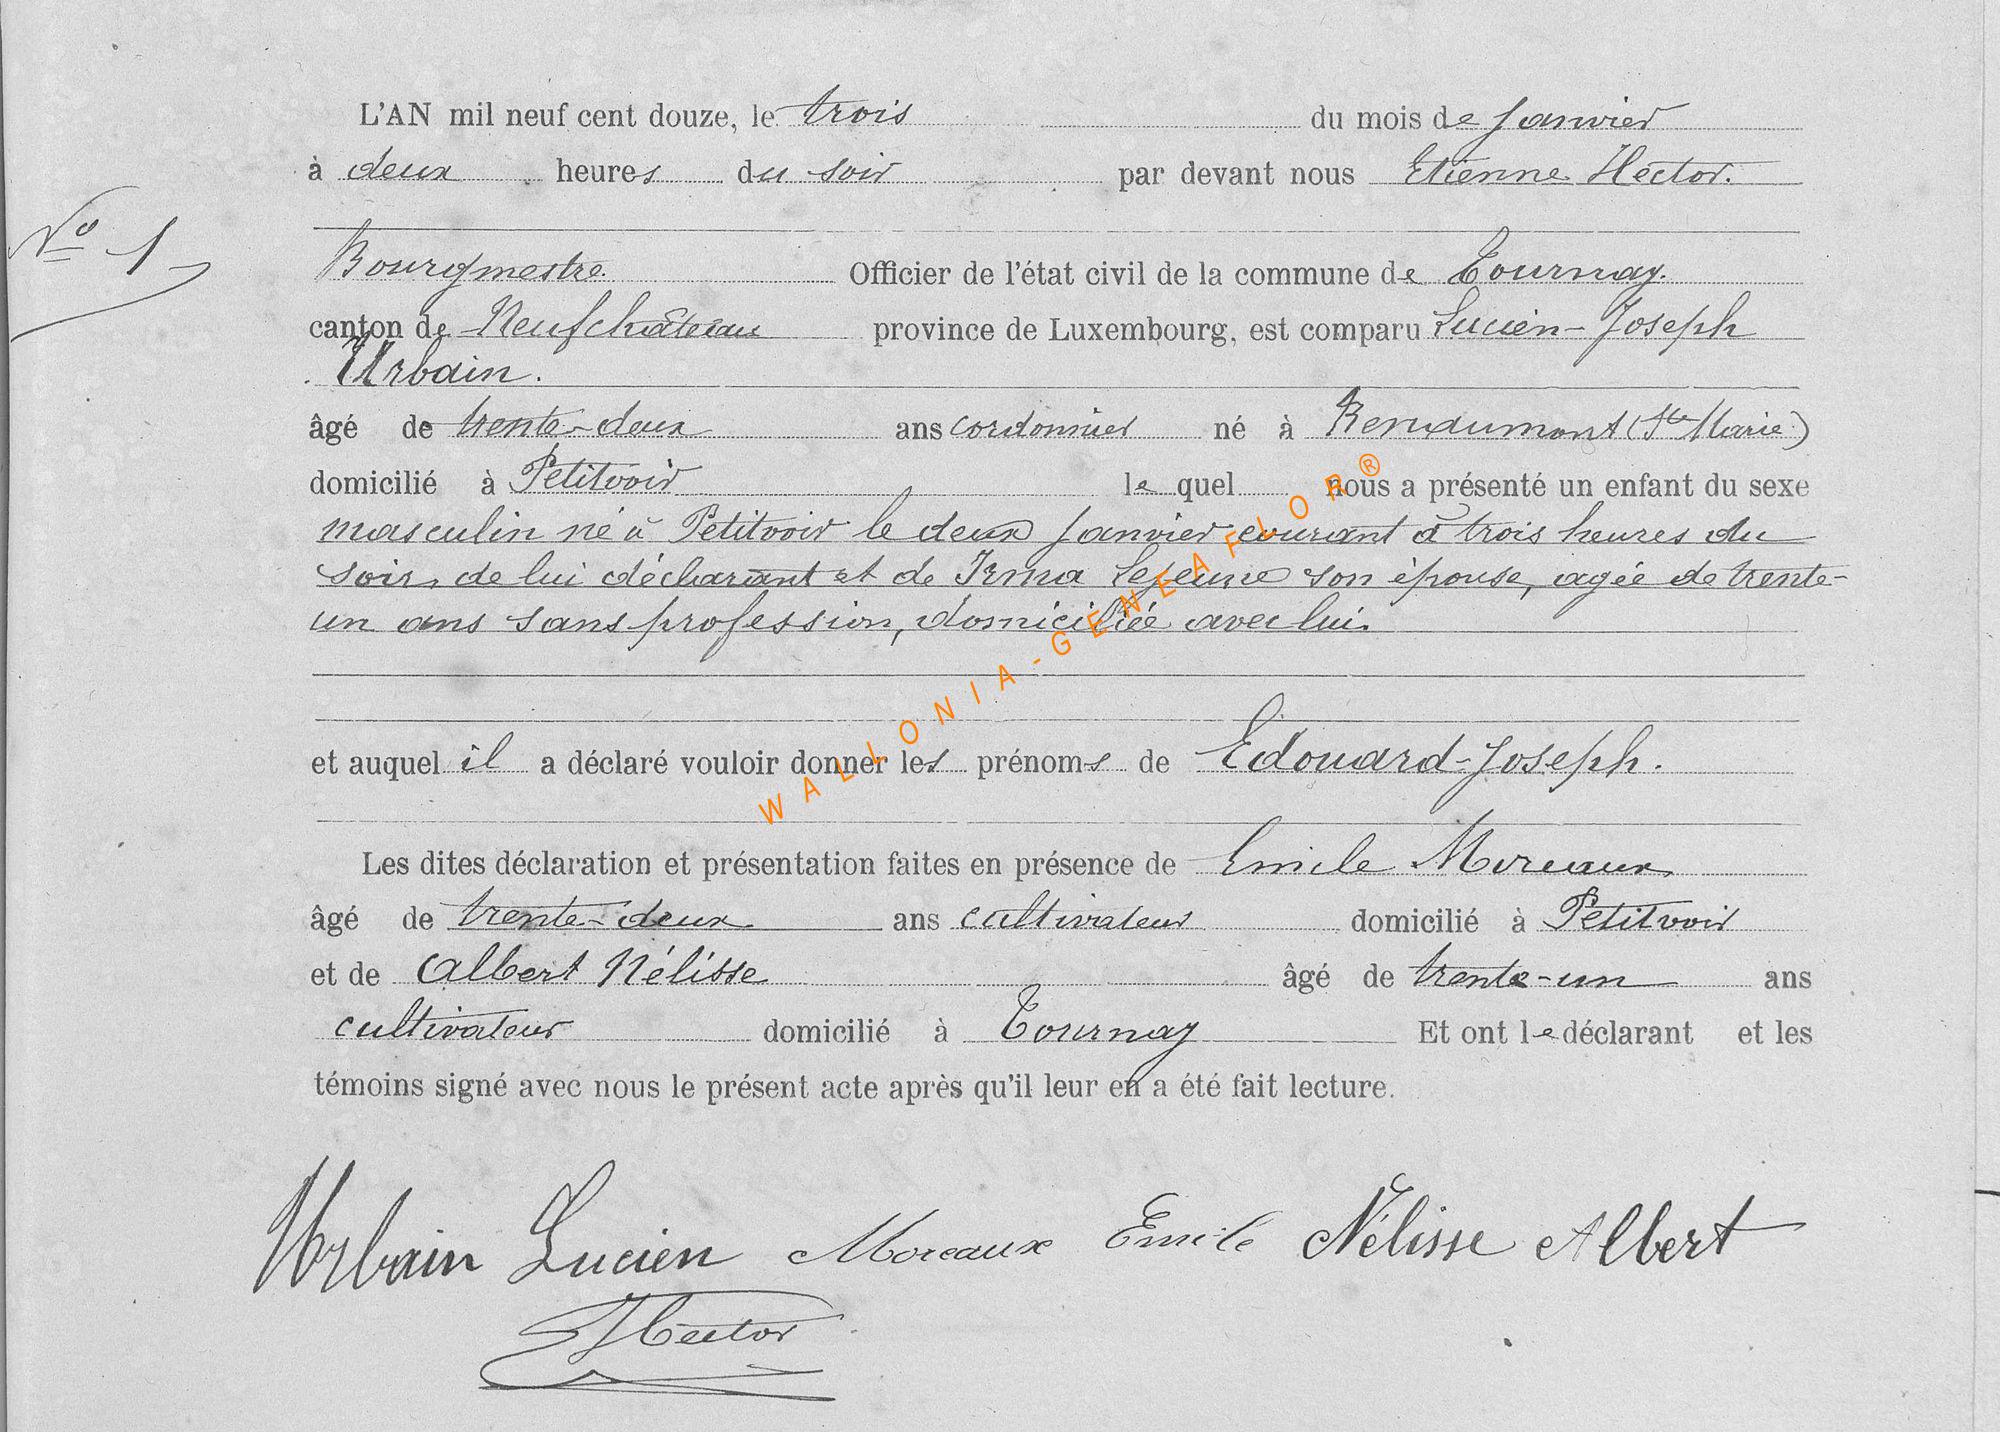 L'AN mil neuf cent douze, le trois du mois de Janvier
à deux heures du soir par devant nous Etienne Hector.
N° 1
Bourgmestre. Officier de l'état civil de la commune de Tournay.
canton de Neufchâteau province de Luxembourg, est comparu Lucien-Joseph
Urbain.
âgé de trente-deux ans cordonnier né à Renaumont (Ste Marie)
domicilié à Petitvoir le quel nous a présenté un enfant du sexe
masculin né à Petitvoir le deux Janvier courant à trois heures du
soir, de lui déclarant et de Irma Lejeune son épouse, agée de trente-
un ans sans profession, domiciliée avec lui.
et auquel il a déclaré vouloir donner les prénoms de Edouard-Joseph.
Les dites déclaration et présentation faites en présence de Emile Moreaux
âgé de trente-deux ans cultivateur domicilié à Petitvoir
et de Albert Nélisse âgé de trente-un ans
cultivateur domicilié à Tournay Et ont le déclarant et les
témoins signé avec nous le présent acte après qu'il leur en a été fait lecture.
Urbain Lucien Moreaux Emile Nélisse Albert
EHector
WALLONIA-GENEAFLOR®